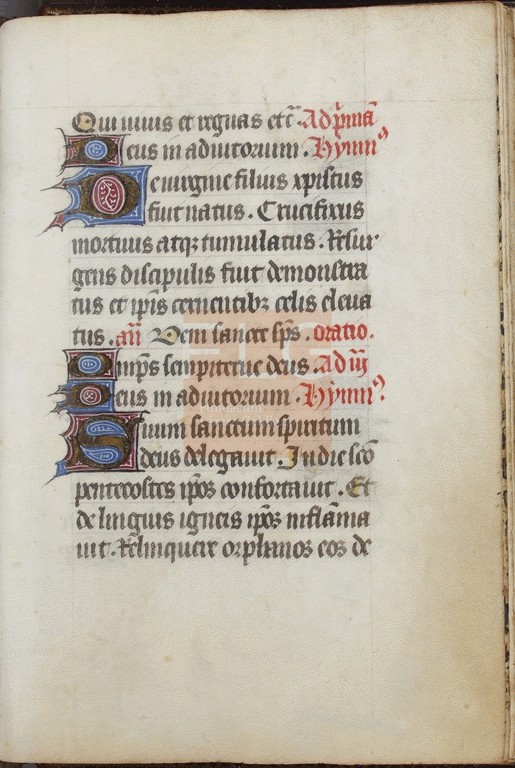 Qui viuis et regnas etc̄. Ad p̄māA
Deus in adiutorium. Hymnꝰ
De virgine filius xpistus
fuit natus. Crucifixus
mortuus atqꝫ tumulatus. Resur
gens discipulis fuit demonstra
tus et ip̄is cernentibꝫ celis eleua
tus. añ Veni sancte sp̄s. oratio.
Omp̄s sempiterne deus. Ad iij
Deus in adiutorium. Hymnꝰ.
Suum sanctum spiritum
deus delegauit. In die sc̄o
penteco​stes ip̄os confortauit. Et
de linguis igneis ip̄os inflāma
uit. Relinquere orphanos eos de